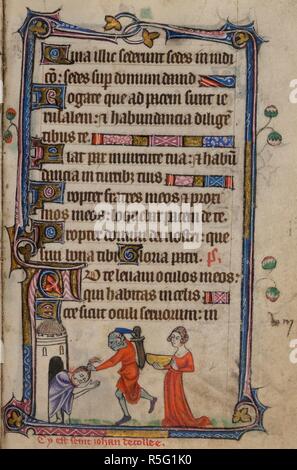 Quia illic sederunt sedes in iudi
cõ: sedes sup domum dauid
Rogate que ad pacem sunt ie
rusalem: ⁊ habundantia diligẽ
tibus te.
Fiat pax in uirtute tua: ⁊ habũ
dancia in turribꝫ tuis
Propter fratres meos ⁊ proxi
mos meos: loquebar pacem de te.
Propter domum dei nostri: que
siui bona tibi Gloria patri. ps.
Ad te leuaui oculos meos:
qui habitas in celis
Ecce sicut oculi seruorum: in
Cy est seint iohan decollee.
R5G1K0